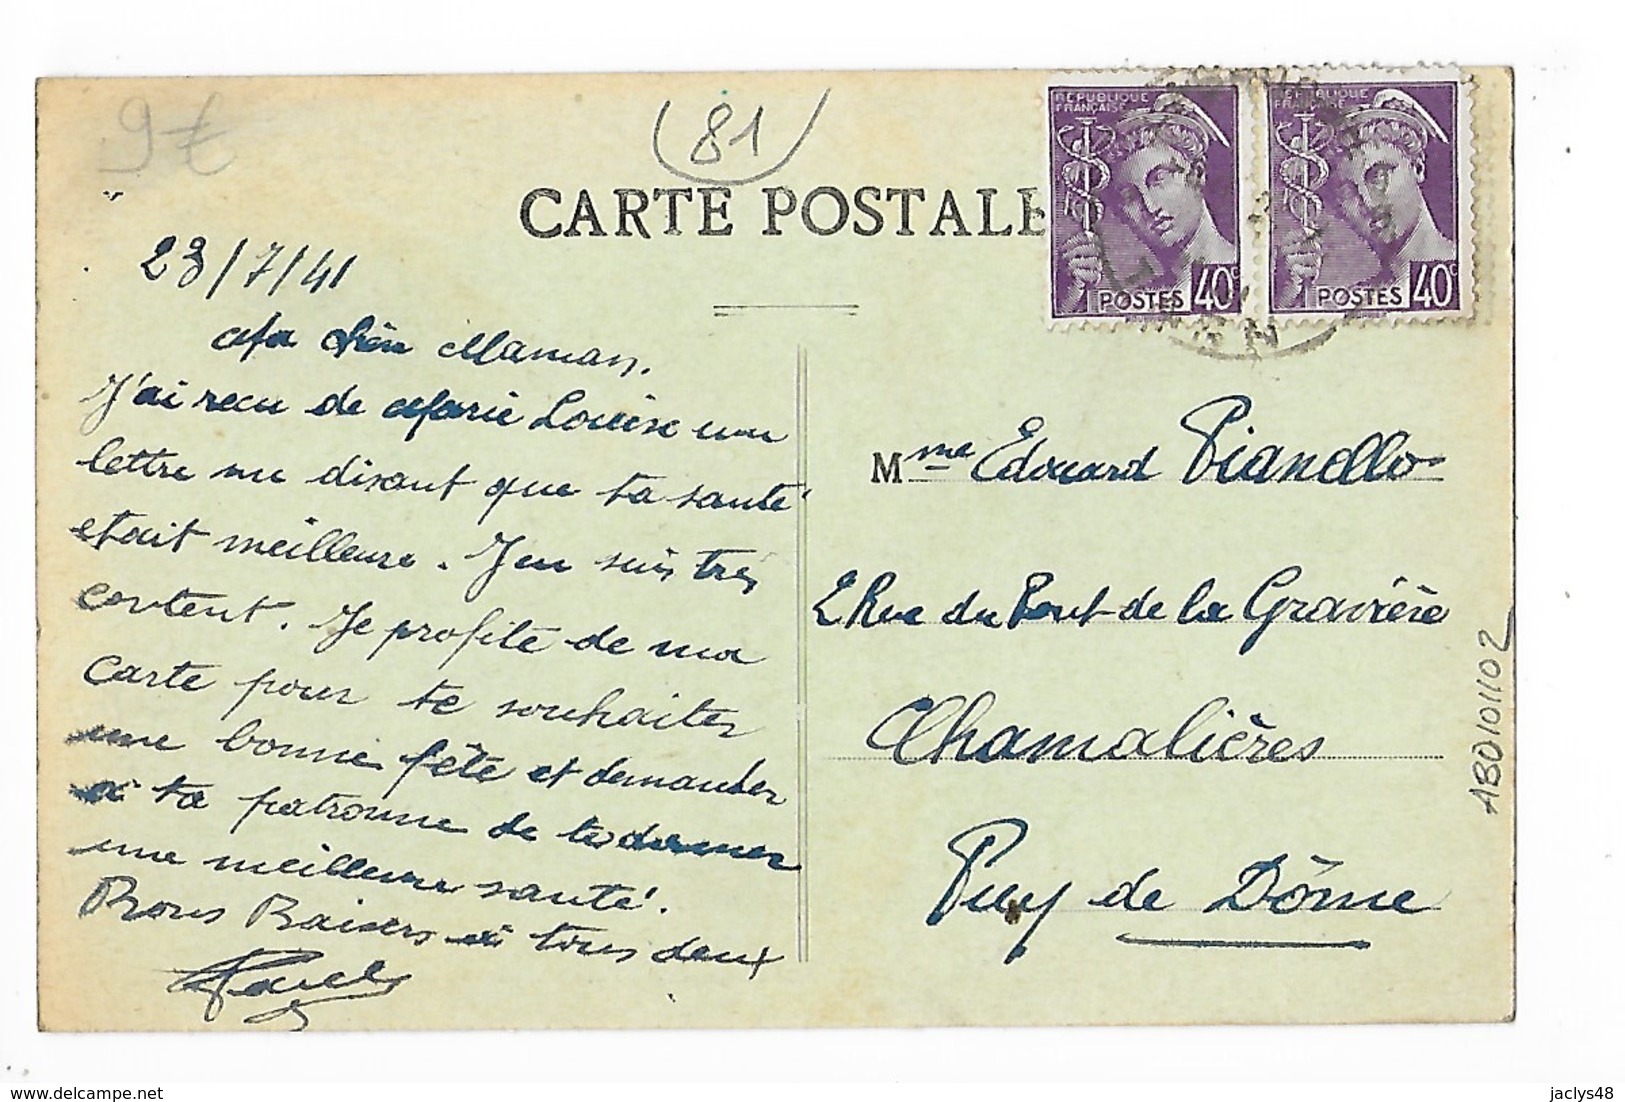 9€
(81)
CARTE POSTALE
RÉPUBLIQUE
FRANÇAISE
POSTES 40c
RÉPUBLIQUE
FRANÇAISE
POSTES 40c
23/7/41
Ma chère Maman.
J'ai reçu de Marie Louise une
lettre me disant que ta santé
etait meilleure. J'en suis très
content. Je profite de ma
carte pour te souhaiter
une bonne fête et demander
à ta patronne de te donner
une meilleure santé.
Bons Baisers à tous deux
Paul
Mme Edouard Pianello
2 Rue du Pont de la Gravière
Chamalières
Puy de Dôme
ABD101102
www.delcampe.net
jaclys48